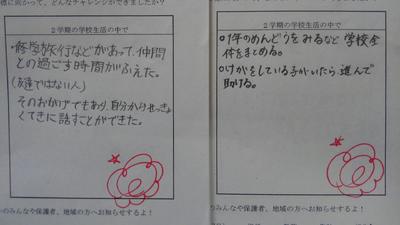 標に向かって、どんなチャレンジができましたか?
2学期の学校生活の中で
・修学旅行などがあって、仲間
との過ごす時間がふえた。
(友達ではない人)
そのおかげでもあり、自分からせっきょ
くてきに話すことができた。
のみんなや保護者、地域の方へお知らせするよ!
2学期の学校生活の中で
○1年のめんどうをみるなど学校全
体をまとめる。
○けがをしている子がいたら進んで
助ける。
のみんなや保護者、地域の方へお知らせするよ!